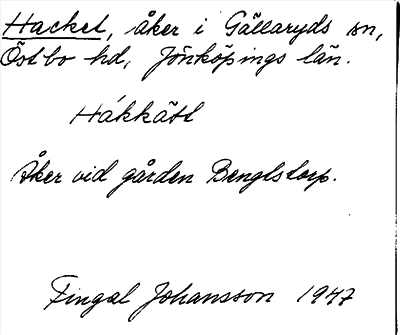 Hacket, åker i Gällaryds sn,
Östbo hd, Jönköpings län.
Hákkätt
Åker vid gården Benglstorp.
Fingal Johansson 1947